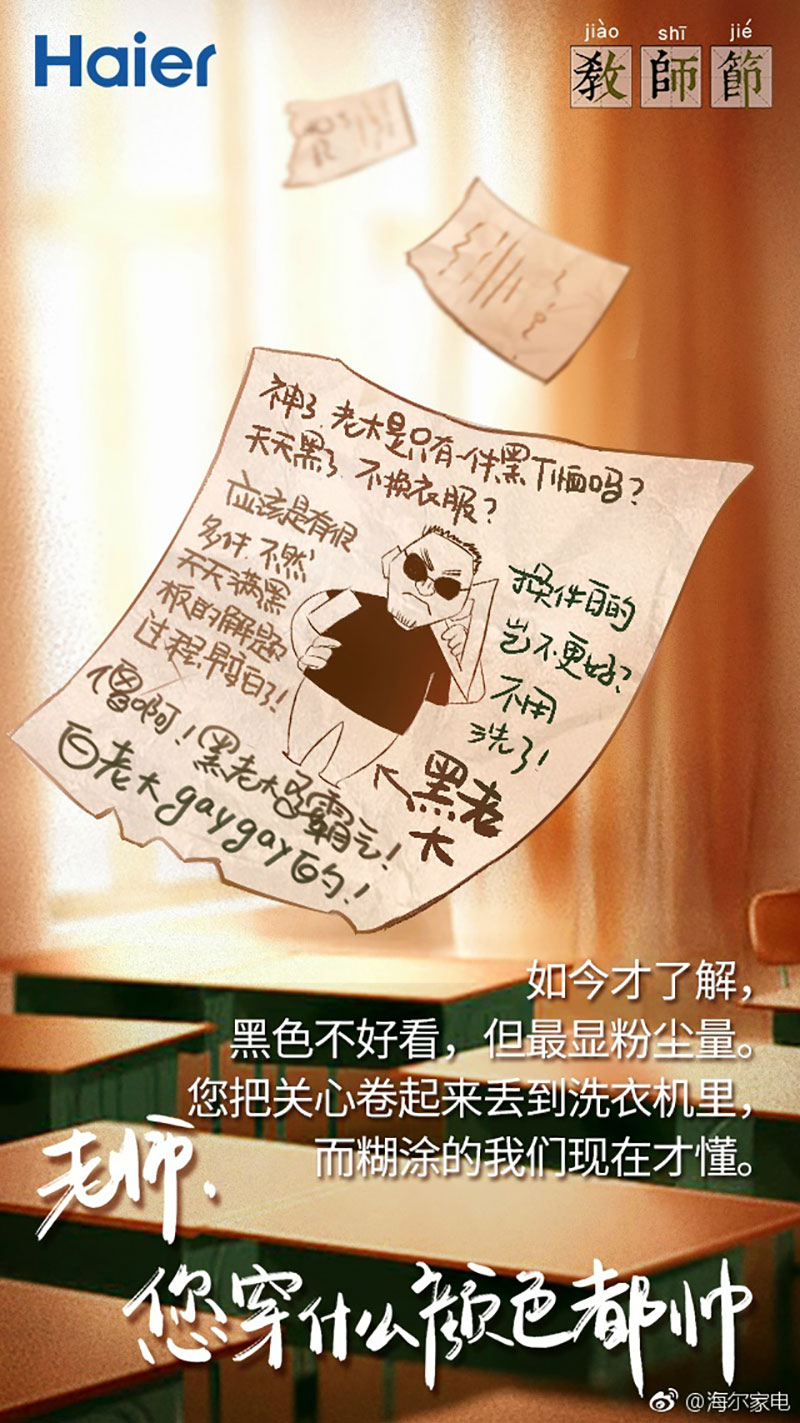 Haier
jiào shī jié
教師節
神了 老大是只有一件黑T恤吗？
天天黑了 不换衣服？
应该是有很
多件、不然
天天满黑
板的解题
过程早白了！
换件白的
岂不更好？
不用
洗了！
傻啊！黑老大多霸气！
白老大gaygay的！
黑老
大
如今才了解，
黑色不好看，但最显粉尘量。
您把关心卷起来丢到洗衣机里，
而糊涂的我们现在才懂。
老师、
您穿什么颜色都帅
@海尔家电